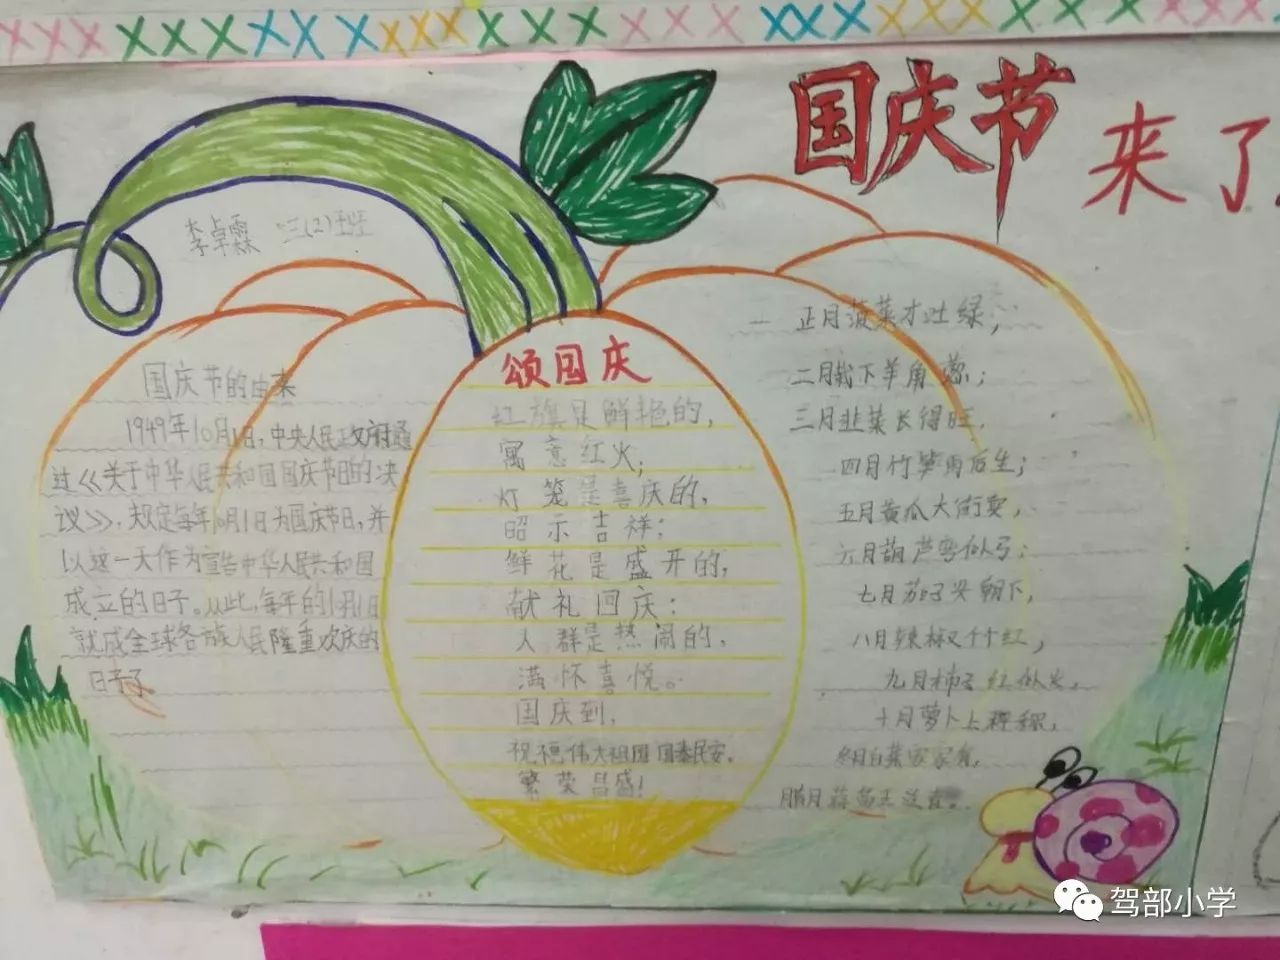 国庆节
来了
李卓霖 三(2)班
国庆节的由来
1949年10月1日,中央人民政府通
过《关于中华人民共和国国庆节日的决
议》,规定每年10月1日为国庆节日,并
以这一天作为宣告中华人民共和国
成立的日子。从此,每年的10月1日
就成全球各族人民隆重欢庆的
日子了
颂国庆
红旗是鲜艳的,
寓意红火;
灯笼是喜庆的,
昭示吉祥;
鲜花是盛开的,
献礼国庆;
人群是热闹的,
满怀喜悦。
国庆到,
祝福伟大祖国国泰民安,
繁荣昌盛!
正月菠菜才吐绿,
二月栽下羊角葱;
三月韭菜长得旺,
四月竹笋雨后生;
五月黄瓜大街卖,
六月葫芦弯似弓;
七月茄子头朝下,
八月辣椒个个红,
九月柿子红似火,
十月萝卜上秤称,
冬月白菜家家有,
腊月蒜苗正送青。
驾部小学